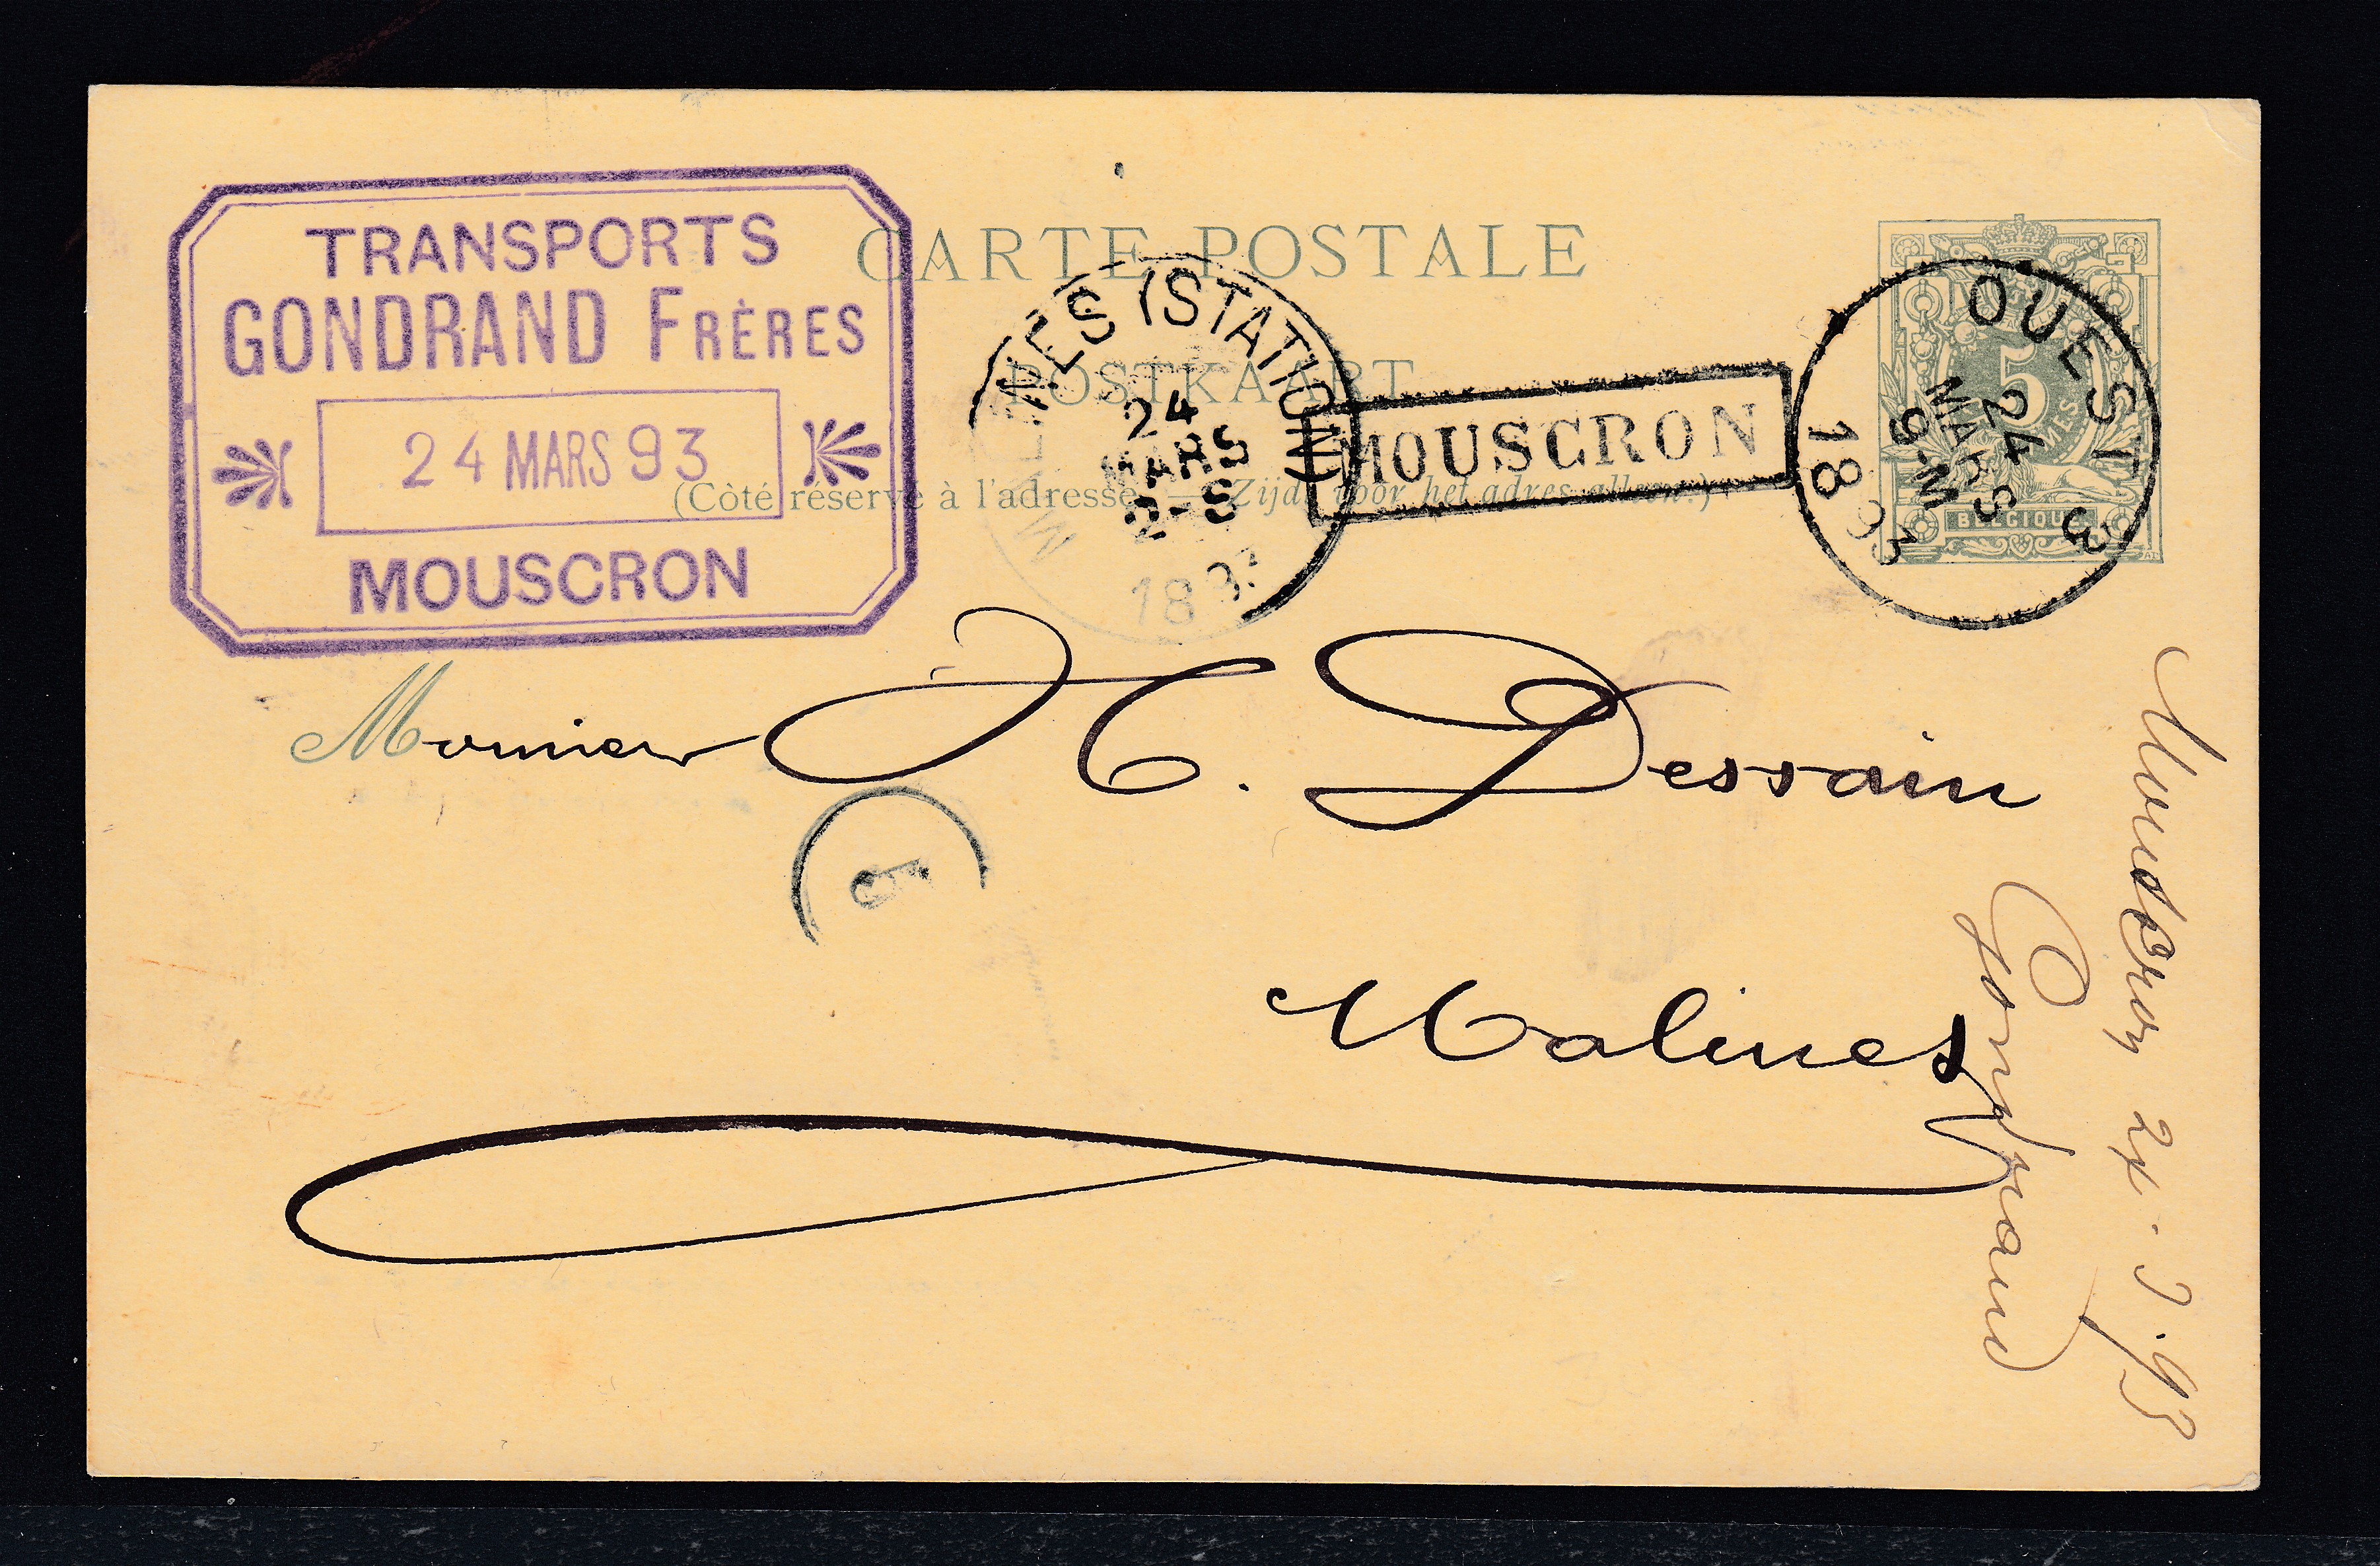 TRANSPORTS
GONDRAND FRÈRES
24 MARS 93
MOUSCRON
CARTE POSTALE
POSTKAART
(Côté réservé à l'adresse. — Zijde voor het adres alleen.)
MALINES (STATION)
24
MARS
1893
MOUSCRON
OUEST 3
24
MARS
9-M
1893
5
BELGIQUE
Monsieur H. Dessain
Malines
Mouscron 24.3.93
Gondrand